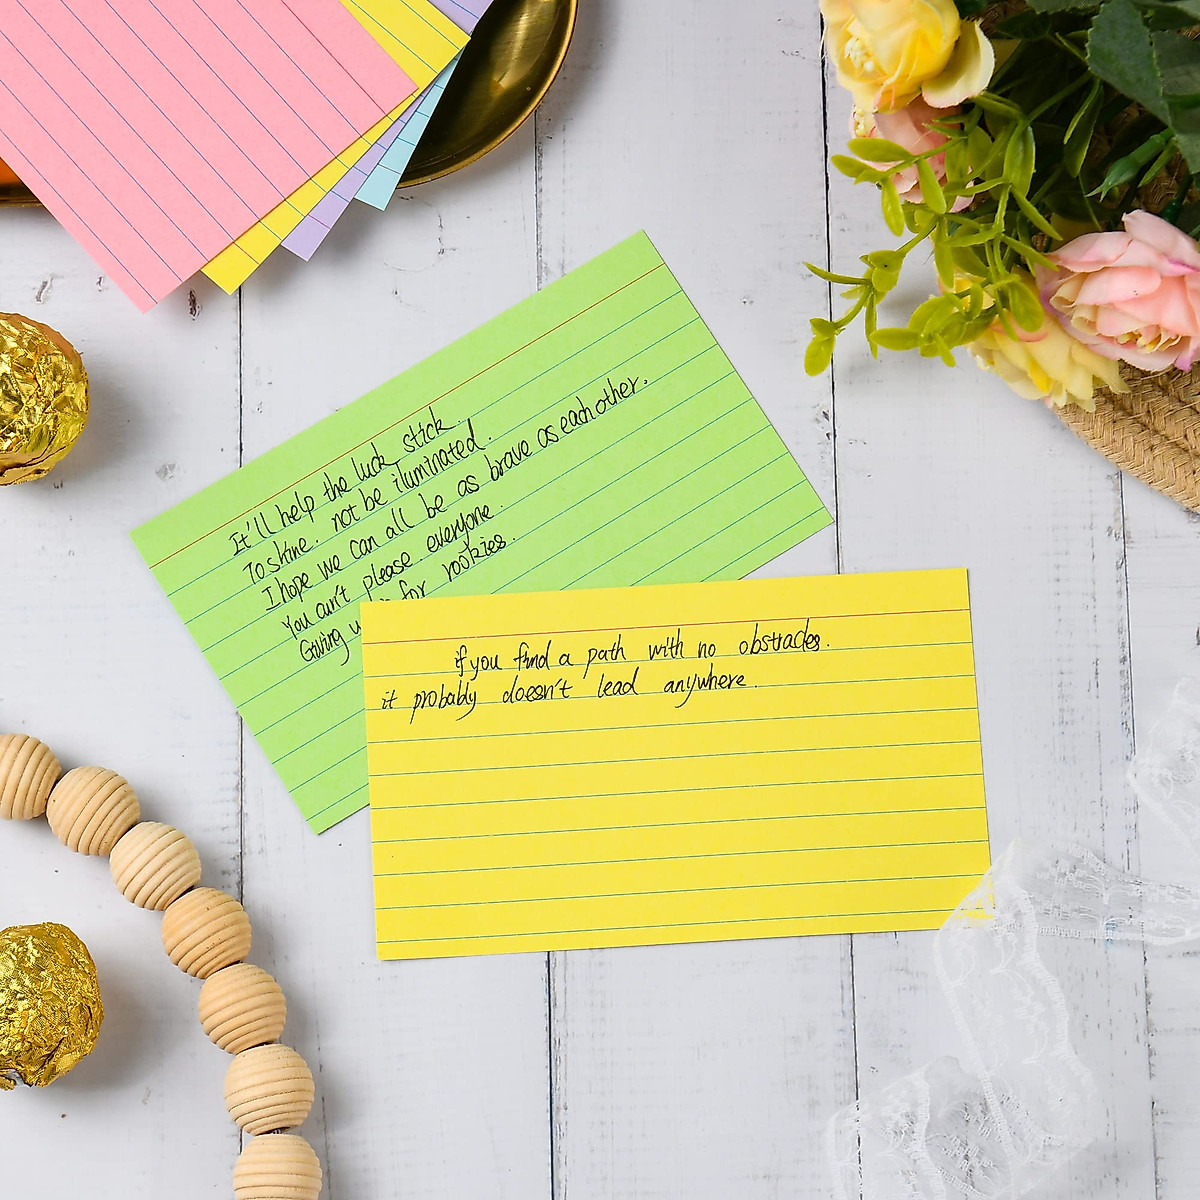 It'll help the luck stick.
To shine. not be iluminated.
I hope we can all be as brave as each other.
You ain't please everyone.
Giving for rookies.
if you find a path with no obstracles.
it probably doesn't lead anywhere.